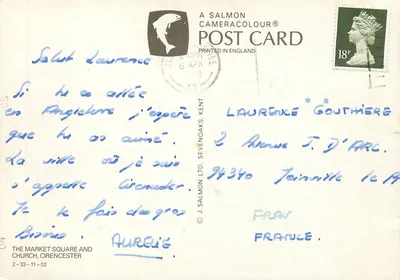 A SALMON
CAMERACOLOUR®
POST CARD
PRINTED IN ENGLAND
18P
Salut Laurence
Si tu es allée
en Angleterre j'espère
que tu as aimé.
La ville où je suis
s'appelle Cirencester
Je te fais de gros
Bisous. AURELIE
LAURENCE GOUTHIERE
2 Avenue J. D'ARC.
94340 Joinville le P
FRAN
FRANCE.
© J. SALMON LTD. SEVENOAKS, KENT
THE MARKET SQUARE AND
CHURCH, CIRENCESTER
2-33-11-02